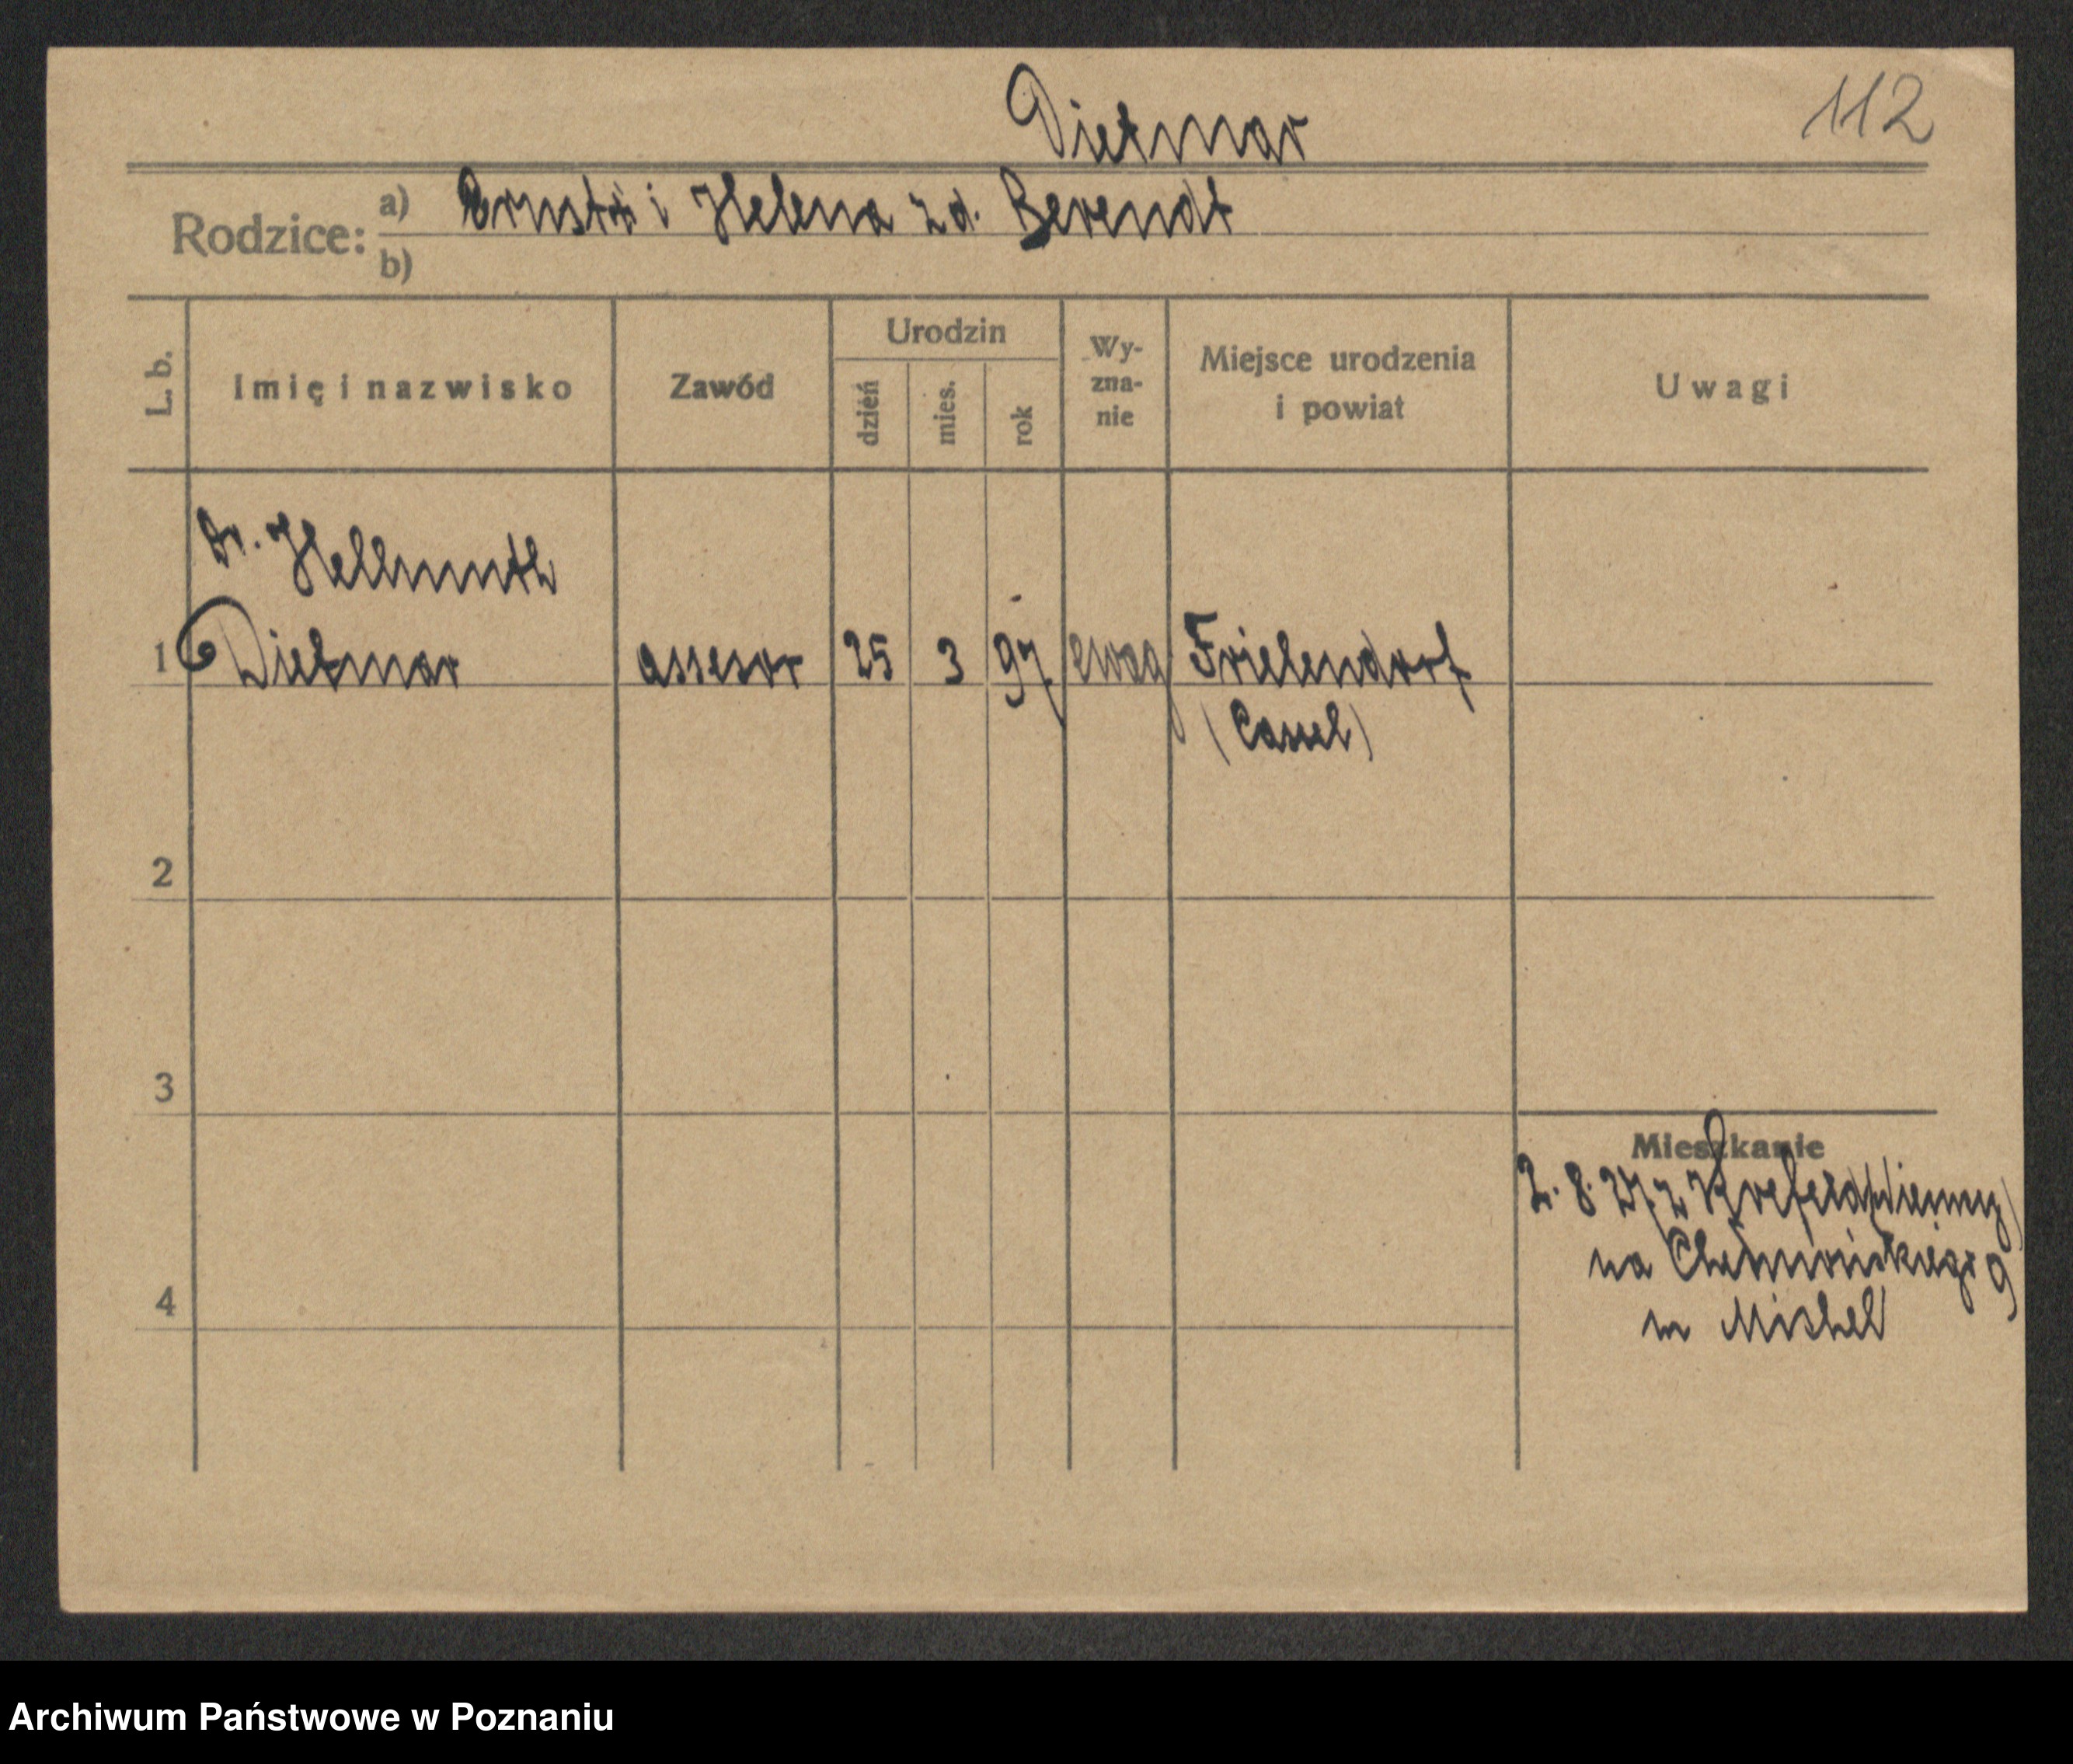 Dietmar
112
Rodzice: a) Ernst i Helena zd. Berendt
b)
L. b.
Imię i nazwisko
Zawód
Urodzin
dzień
mies.
rok
Wy-
zna-
nie
Miejsce urodzenia
i powiat
Uwagi
Dr. Hellmuth
1 Dietmar assesor 25 3 97 ewag Frielendorf
(Cassel)
2
3
Mieszkanie
2. 8. 27. z Krefeld
na Chełmońskiego 9
4
m Michel
Archiwum Państwowe w Poznaniu